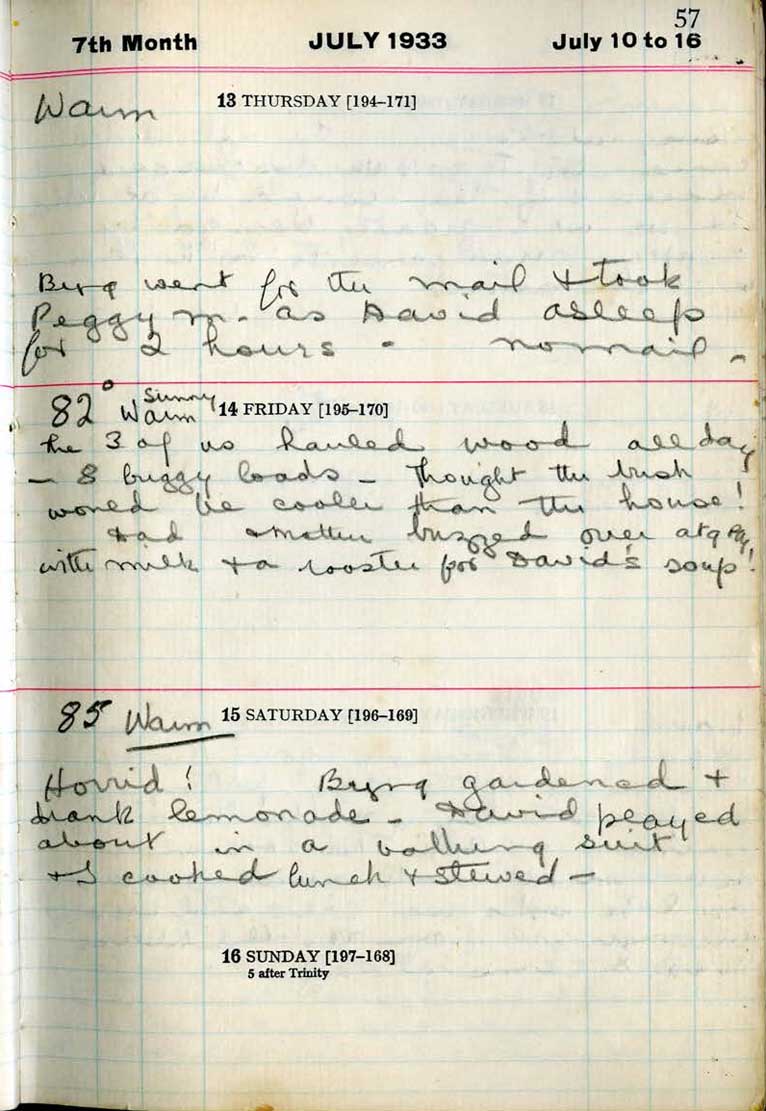 57
7th Month JULY 1933 July 10 to 16
Warm 13 THURSDAY [194–171]
went for the mail & took
Peggy m. as David asleep
for 2 hours - no mail -
82° Sunny
Warm 14 FRIDAY [195–170]
the 3 of us hauled wood all day
– 8 buggy loads – Thought the bush
would be cooler than the house!
Dad & Mother buzzed over at 9
with milk & a rooster for David's soup!
85 Warm 15 SATURDAY [196–169]
Horrid! gardened &
drank lemonade – David played
about in a bathing suit
& I cooked lunch & stewed –
16 SUNDAY [197–168]
5 after Trinity